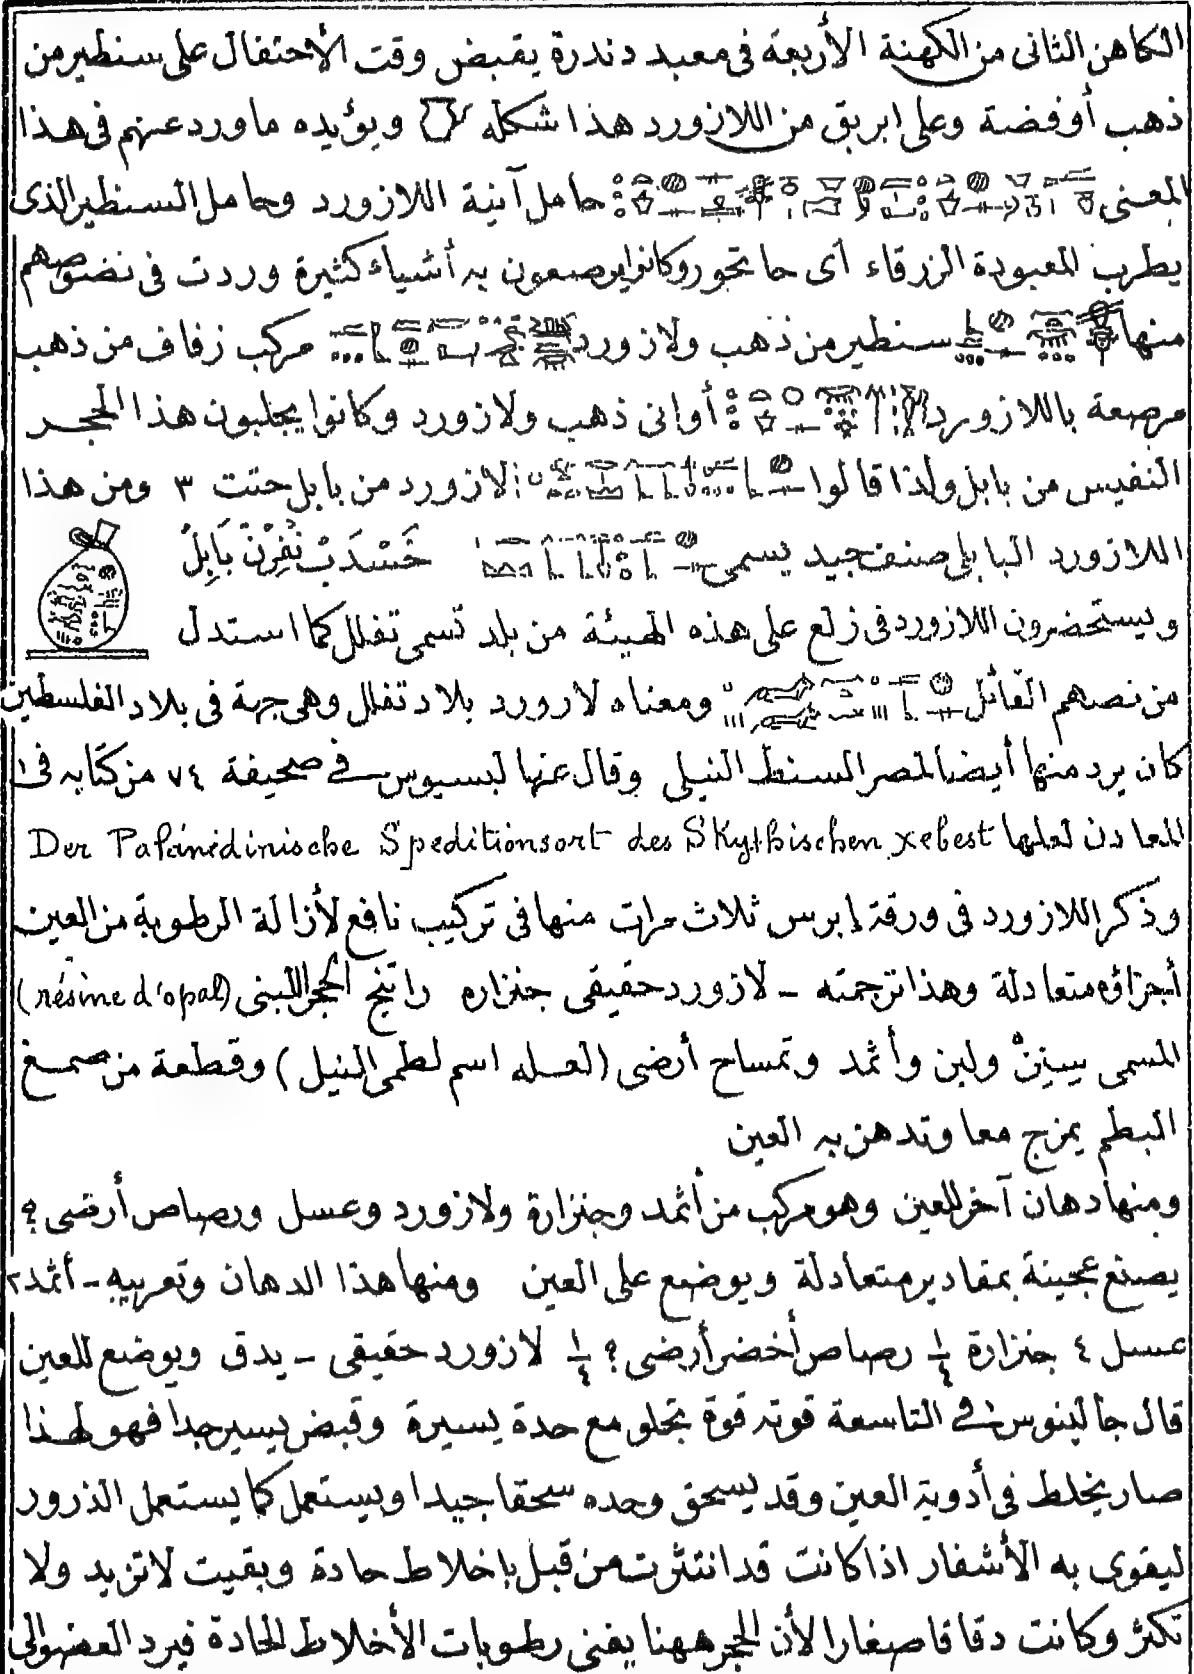 الكاهن الثانى من الكهنة الأربعة فى معبد دندرة يقبض وقت الأحتفال على سنطير من
ذهب أو فضة وعلى ابريق من اللازورد هذا شكله ويؤيده ماورد عنهم فى هذا
المعنى حامل آنية اللازورد وحامل السنطير الذى
يطرب المعبودة الزرقاء أى حاتحور وكانوا يرصعون به أشياء كثيرة وردت فى نصوصهم
منها سنطير من ذهب ولازورد مركب زفاف من ذهب
مرصعة باللازورد أوانى ذهب ولازورد وكانوا يجلبون هذا الحجر
النفيس من بابل ولذا قالوا لازورد من بابل حتت ٣ ومن هذا
اللازورد البابلى صنف جيد يسمى خَسْدَبْ نُفِرْنْ بَابِلُ
ويستحضرون اللازورد فى زلع على هذه الهيئة من بلد تسمى تفلل كما استدل
من نصهم القائل ومعناه لازورد بلاد تفلل وهى جهة فى بلاد الفلسطين
كان يرد منها أيضا لمصر السنط النيلى وقال عنها لبسيوس فى صحيفة ٧٤ من كتابه فى
المعادن لعلها Der Palänedinische Speditionsort des Skythischen xebest
وذكر اللازورد فى ورقة إبرس ثلاث مرات منها فى تركيب نافع لأزالة الرطوبة من العين
أجزاؤه متعادلة وهذا ترجمته - لازورد حقيقى جنزاره راتنج الحجر اللبنى (résine d'opal)
المسمى ولبن وأثمد وتمساح أرضى (لعله اسم لطمى النيل) وقطعة من صمغ
البطم يمزج معا وتدهن به العين
ومنها دهان آخر للعين وهو مركب من أثمد وجنزارة ولازورد وعسل ورصاص أرضى ؟
يصنع عجينة بمقادير متعادلة ويوضع على العين ومنها هذا الدهان وتعريبه - أثمد ٢
عسل ٤ جنزارة ١/٤ رصاص أخضر أرضى ؟ ١/٤ لازورد حقيقى - يدق ويوضع للعين
قال جالينوس فى التاسعة قوته قوة تجلو مع حدة يسيرة وقبض يسير جدا فهو لهذا
صار يخلط فى أدوية العين وقد يسحق وحده سحقا جيدا ويستعمل كما يستعمل الذرور
ليقوى به الأشفار اذا كانت قد انتثرت من قبل باخلاط حادة وبقيت لا تزيد ولا
تكثر وكانت دقاقا صغارا لأن الحجر ههنا يفنى رطوبات الأخلاط الحادة فيرد العضو الى